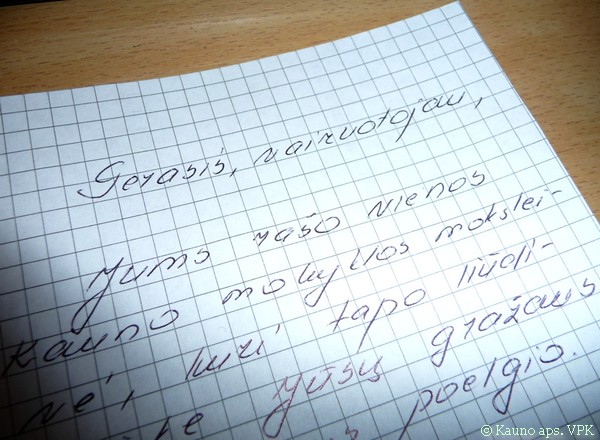 Gerasis, vairuotojau,
Jums rašo vienos
Kauno mokyklos mokslei-
vė, kuri tapo liūdi-
Jūsų gražaus
poelgio.
© Kauno aps. VPK